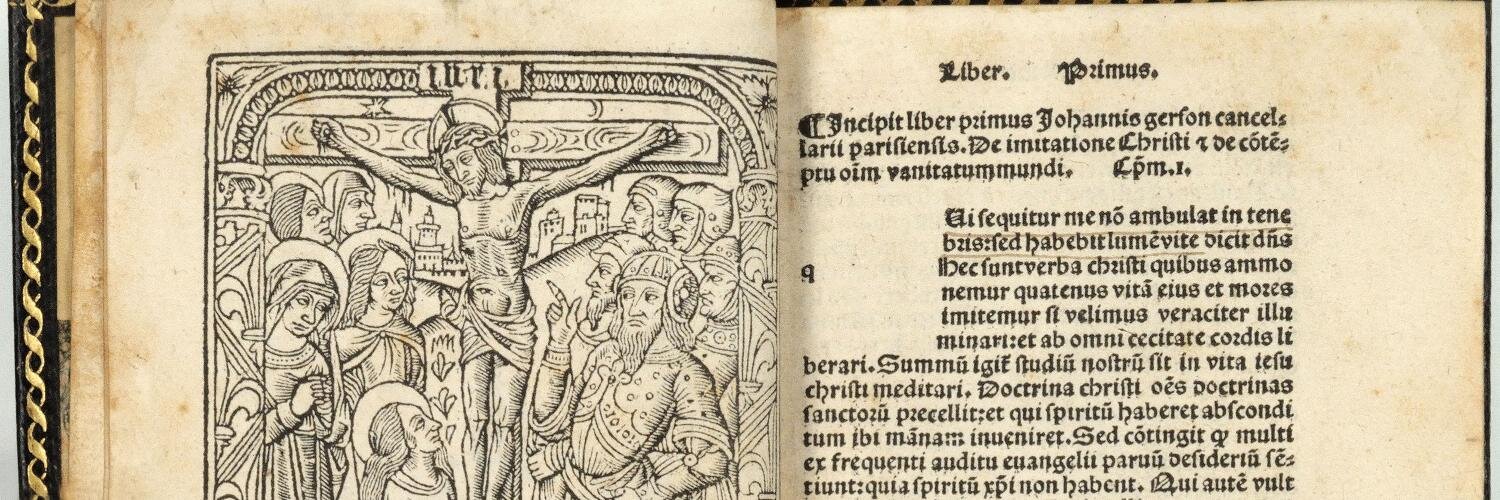 I.N.R.I.
Liber. Primus.
¶ Incipit liber primus Johannis gerson cancel⸗
larii parisiensis. De imitatione Christi ⁊ de cōtē⸗
ptu oīm vanitatummundi. Cp̄m.1.
Ui sequitur me nō ambulat in tene
bris:sed habebit lumē vite dicit dn̄s
q
Hec sunt verba christi quibus ammo
nemur quatenus vitā eius et mores
imitemur si velimus veraciter illu
minari:et ab omni cecitate cordis li
berari. Summū igit̄ studiū nostrū sit in vita iesu
christi meditari. Doctrina christi oēs doctrinas
sanctorū precellit:et qui spiritū haberet abscondi
tum ibi mānam inueniret. Sed cōtingit ꝙ multi
ex frequenti auditu euangelii paruū desideriū sē⸗
tiunt:quia spiritū xp̄i non habent. Qui autē vult